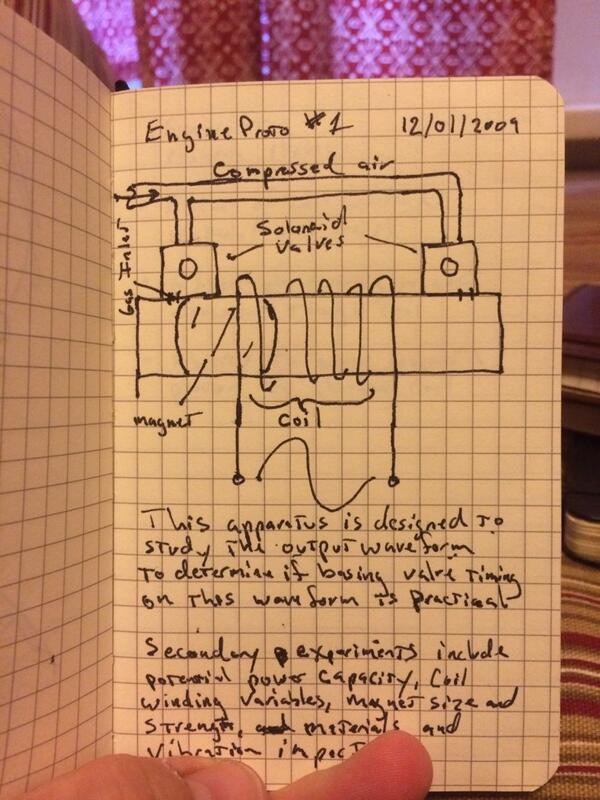 Engine Proto #1 12/01/2009
Compressed air
Solonoid
valves
Gas Inlet
magnet
Coil
This apparatus is designed to
study the output waveform
to determine if basing valve timing
on this waveform is practical
Secondary experiments include
potential power capacity, Coil
winding variables, magnet size and
strength, and materials and
vibration impact